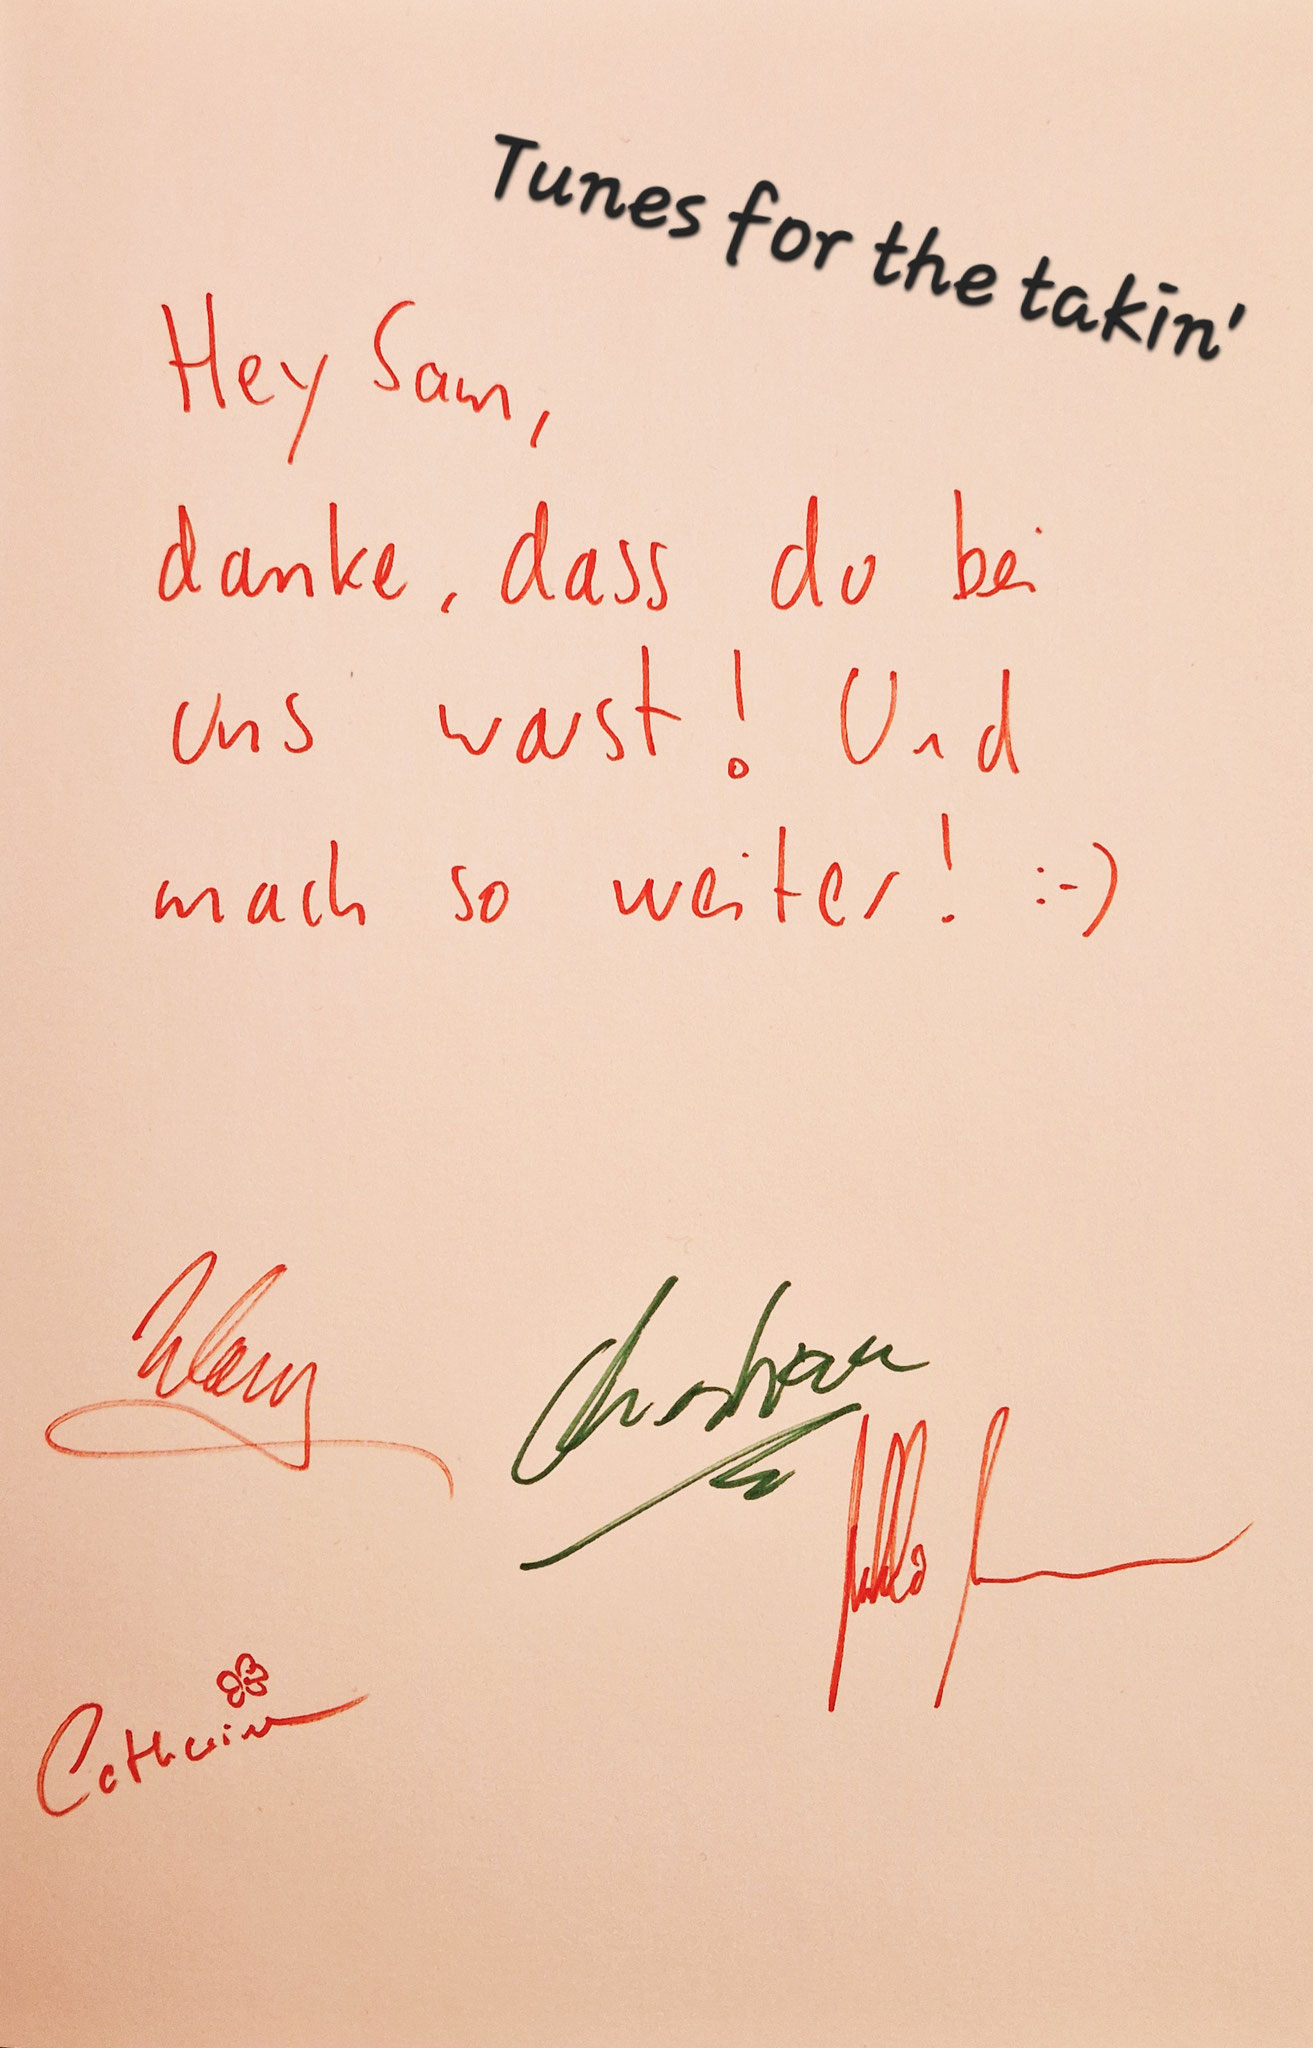 Tunes for the takin'
Hey Sam,
danke, dass du bei
uns warst! Und
mach so weiter! :-)
Christian
Catherine